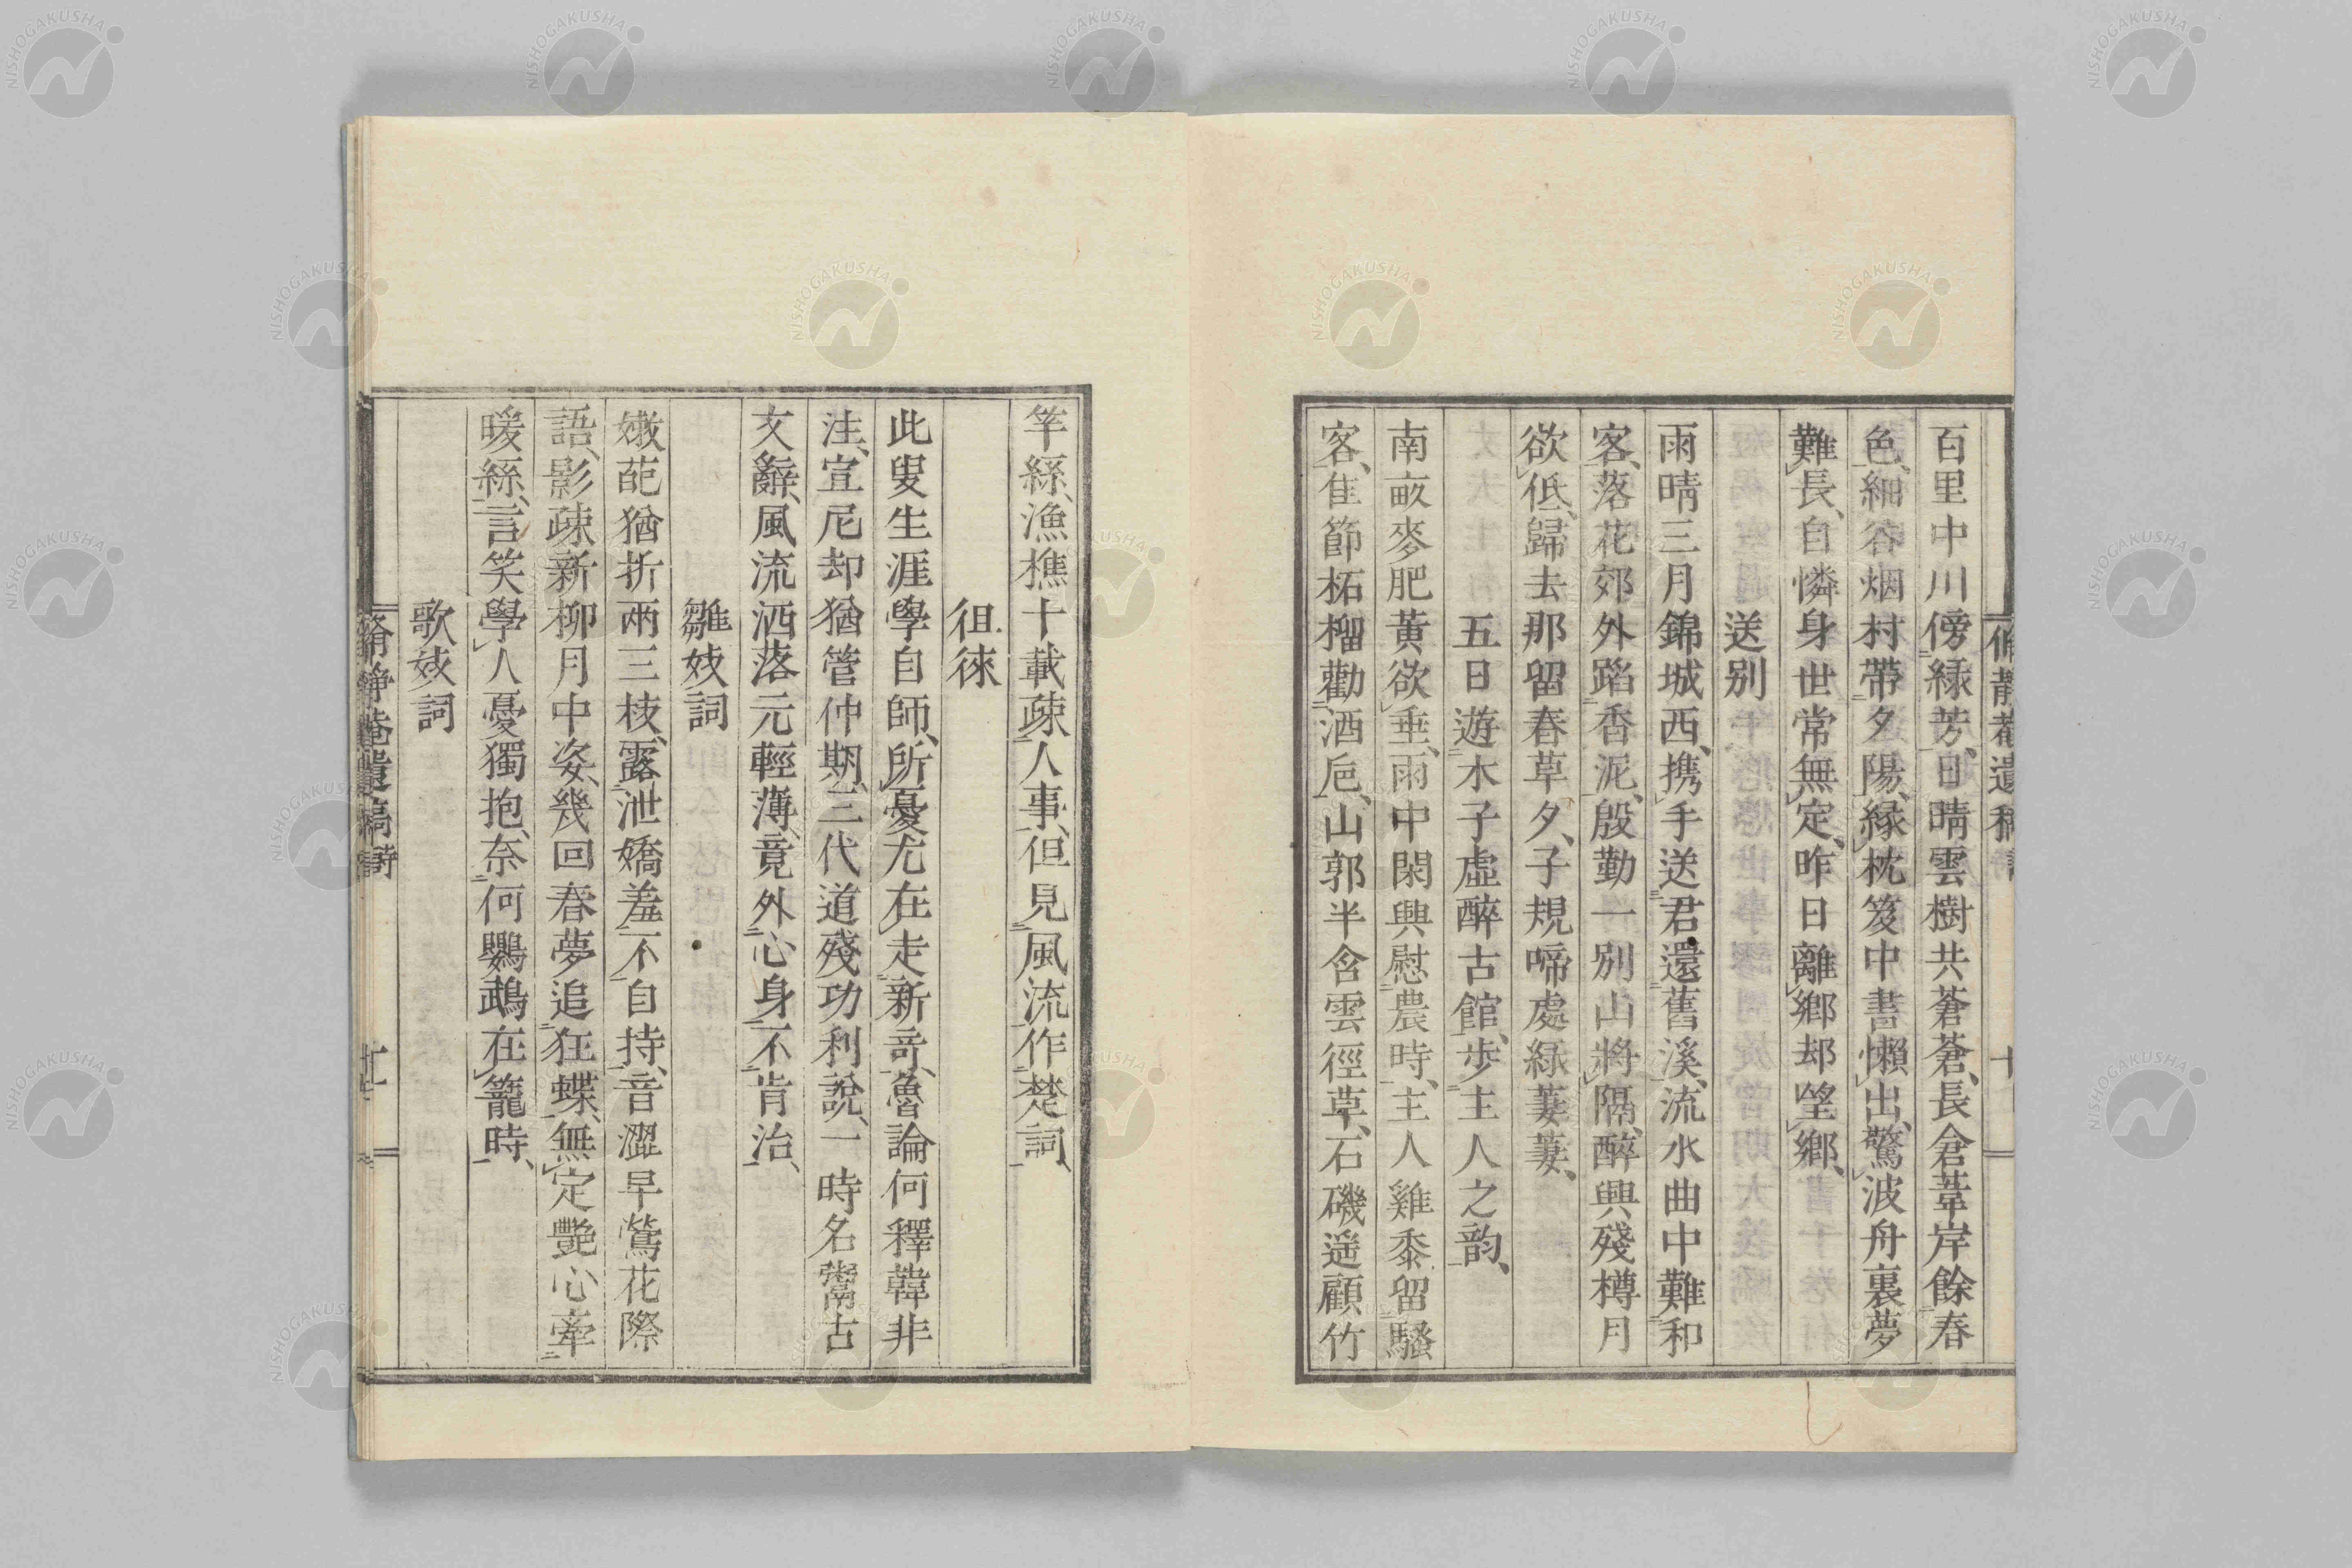 百里中川傍緑芳、日晴雲樹共蒼蒼、長倉葦岸餘春
色、細谷烟村帶夕陽、緑枕笈中書懶出、驚波舟裏夢
難長、自憐身世常無定、昨日離鄉却望鄉、
送別
雨晴三月錦城西、携手送君還舊溪、流水曲中難和
客、落花郊外蹈香泥、殷勤一別山將隔、醉興殘樽月
欲低、歸去那留春草夕、子規啼處緑萋萋、
五日遊木子虛醉古館、歩主人之韵、
南畝麥肥黃欲垂、雨中閑興慰農時、主人雞黍留騷
客、佳節柘榴勸酒巵、山郭半含雲徑草、石磯遥顧竹
竿絲、漁樵十載疎人事、但見風流作楚詞、
徂徠
此叟生涯學自師、所憂尤在走新奇、魯論何釋韓非
注、宣尼却猶管仲期、三代道殘功利說、一時名鬻古
文辭、風流洒落元輕薄、竟外心身不肯治、
雛妓詞
嫩葩猶折兩三枝、露泄嬌羞不自持、音澀早鶯花際
語、影疎新柳月中姿、幾回春夢追狂蝶、無定艷心牽
暖絲、言笑學人憂獨抱、奈何鸚鵡在籠時、
歌妓詞
脩靜菴遺稿 詩
十一